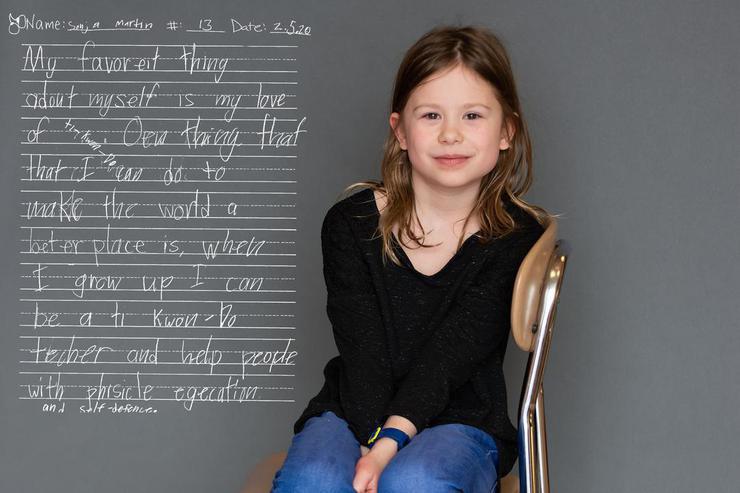 Name: Sonja Martin #: 13 Date: 2.5.20
My favoreit thing
adout myself is my love
of ti Kwon-Do. Oen thing that
that I can do to
make the world a
beter place is, when
I grow up I can
be a ti Kwon-Do
techer and help people
with phisicle egecation
and self-defence.